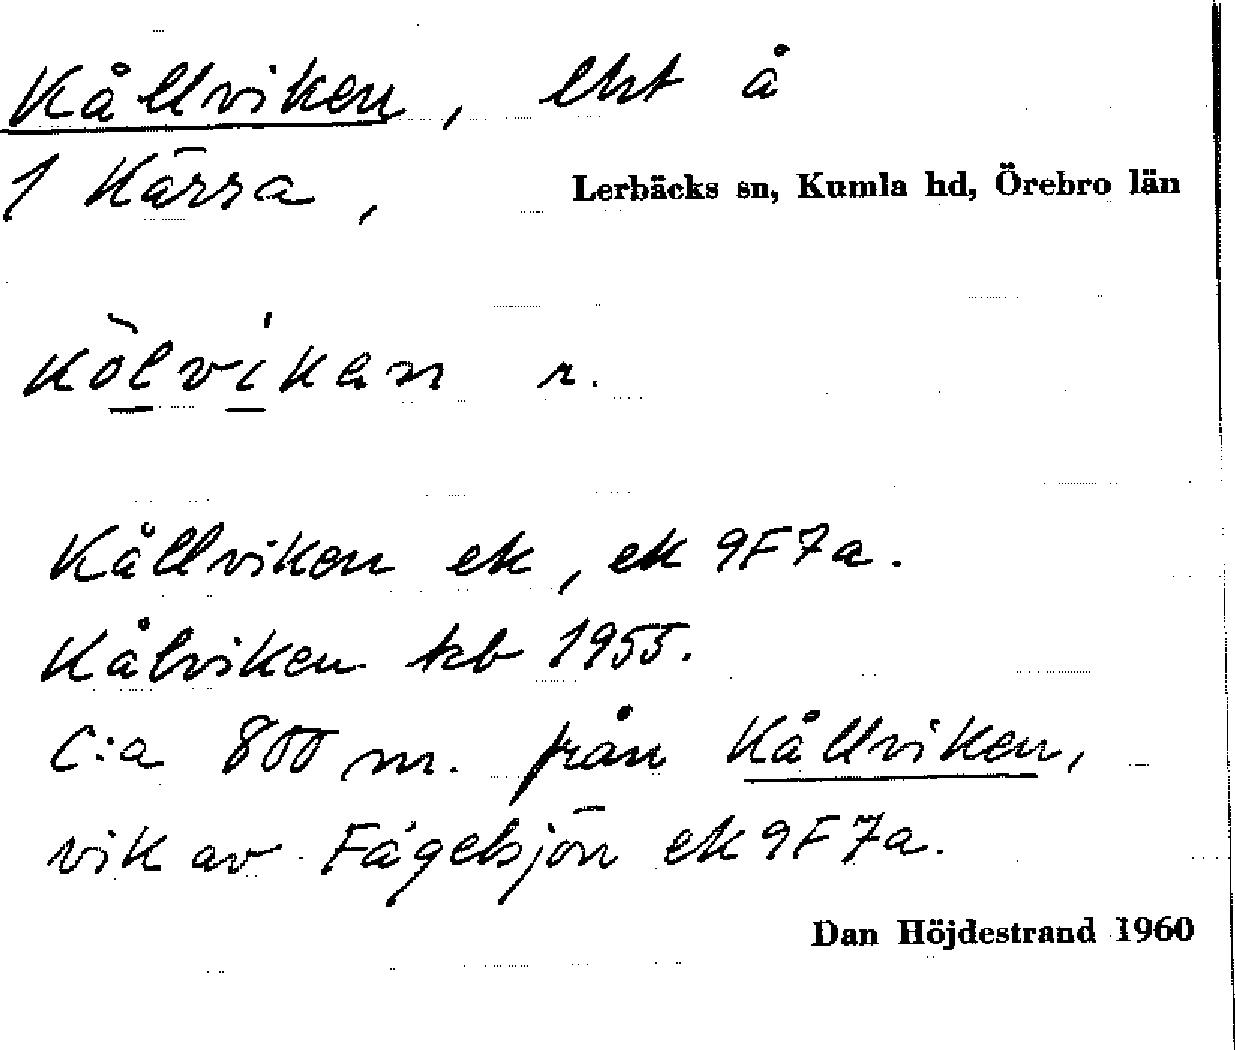 Kållviken, lht å
1 Kärra, Lerbäcks sn, Kumla hd, Örebro län
kòlvíkan r.
Kållviken ek, ek 9F7a.
Kålviken tcb 1955.
C:a 800 m. från Kållviken,
vik av Fågelsjön ek 9F7a.
Dan Höjdestrand 1960